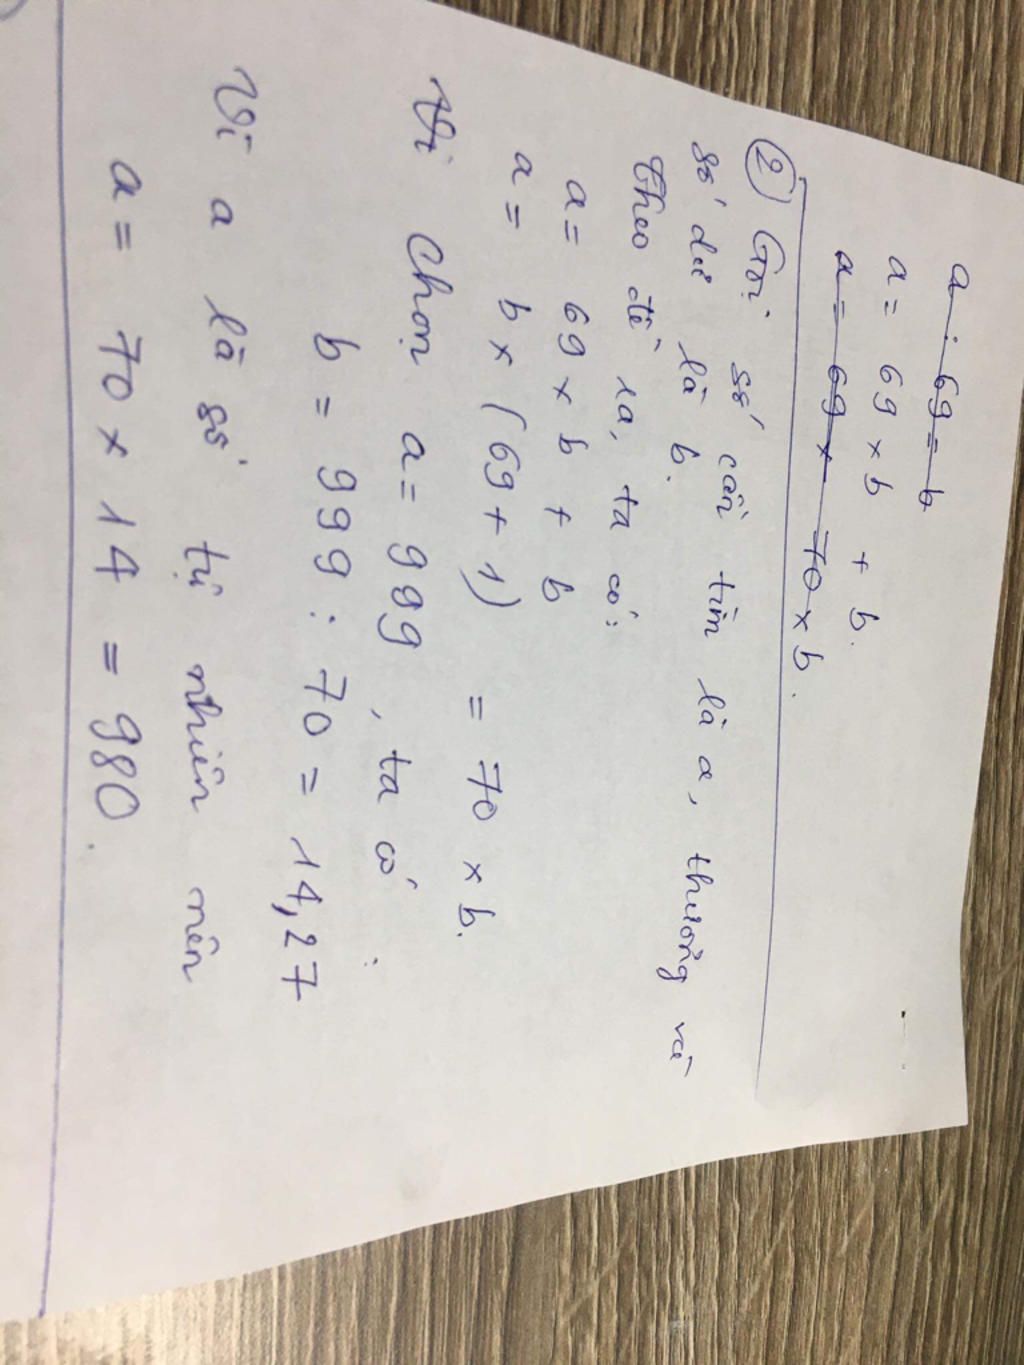 a : 69 = b
a = 69 x b + b.
a = 69 x 70 x b.
② Gọi số cần tìm là a, thương và
số dư là b.
Theo đề ra, ta có:
a = 69 x b + b
a = b x (69 + 1) = 70 x b.
Vì chọn a = 999, ta có:
b = 999 : 70 = 14,27
Vì a là số tự nhiên nên
a = 70 x 14 = 980.